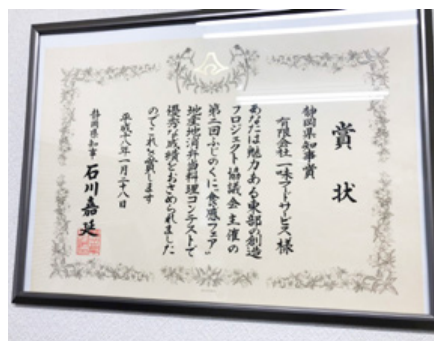 賞状
静岡県知事賞
有限会社一味フードサービス様
あなたは魅力ある東部の創造
プロジェクト協議会主催の
第二回ふじのくに"食感フェア"
地産地消弁当料理コンテストで
優秀な成績をおさめられました
のでこれを賞します
平成十八年一月二十八日
静岡県知事 石川嘉延